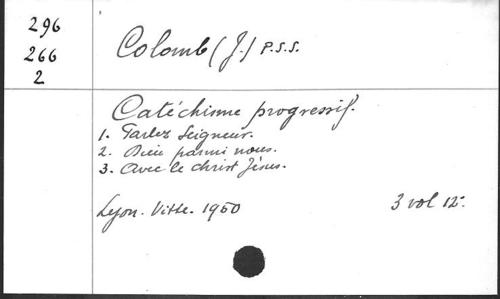 296
266
2
Colomb (J.) P.S.S.
Catéchisme progressif.
1. Parlez Seigneur.
2. Dieu parmi nous.
3. Avec le Christ Jésus.
Lyon. Vitte. 1950
3 vol 12°.